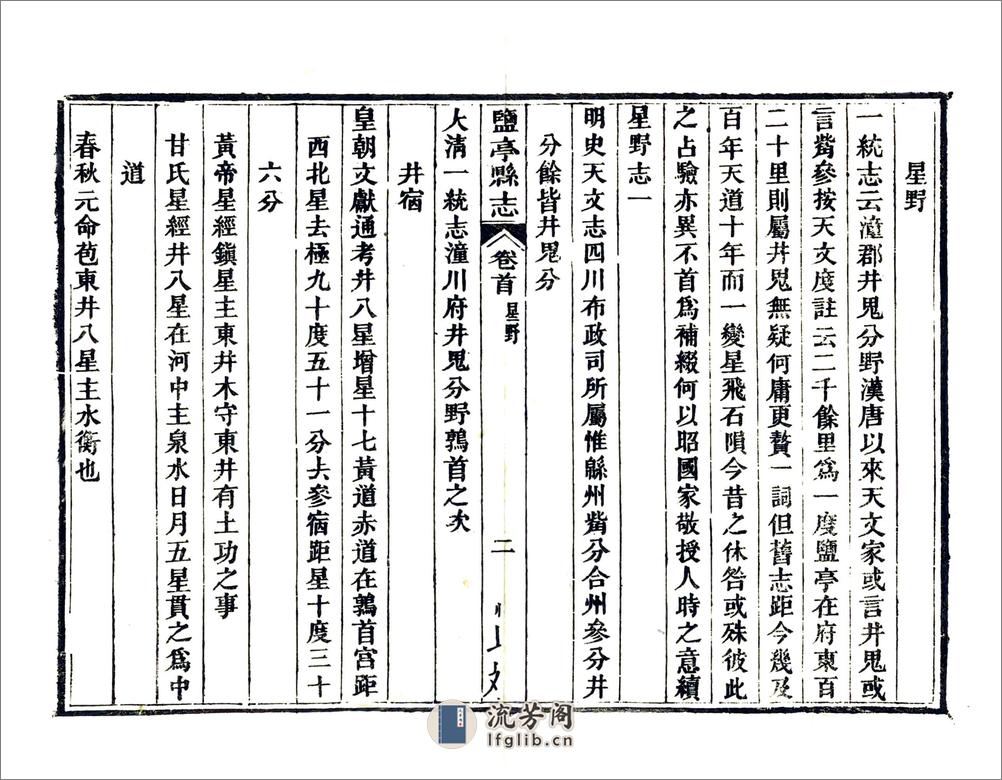 星野
一統志云潼郡井鬼分野漢唐以來天文家或言井鬼或
言觜參按天文度註云二千餘里爲一度鹽亭在府東百
二十里則屬井鬼無疑何庸更贅一詞但舊志距今幾及
百年天道十年而一變星飛石隕今昔之休咎或殊彼此
之占驗亦異不首爲補綴何以昭國家敬授人時之意續
星野志一
明史天文志四川布政司所屬惟緜州觜分合州參分井
分餘皆井鬼分
鹽亭縣志
卷首
星野
二
大清一統志潼川府井鬼分野鶉首之次
井宿
皇朝文獻通考井八星增星十七黃道赤道在鶉首宮距
西北星去極九十度五十一分去參宿距星十度三十
六分
黃帝星經鎭星主東井木守東井有土功之事
甘氏星經井八星在河中主泉水日月五星貫之爲中
道
春秋元命苞東井八星主水衡也
流芳阁
lfglib.cn